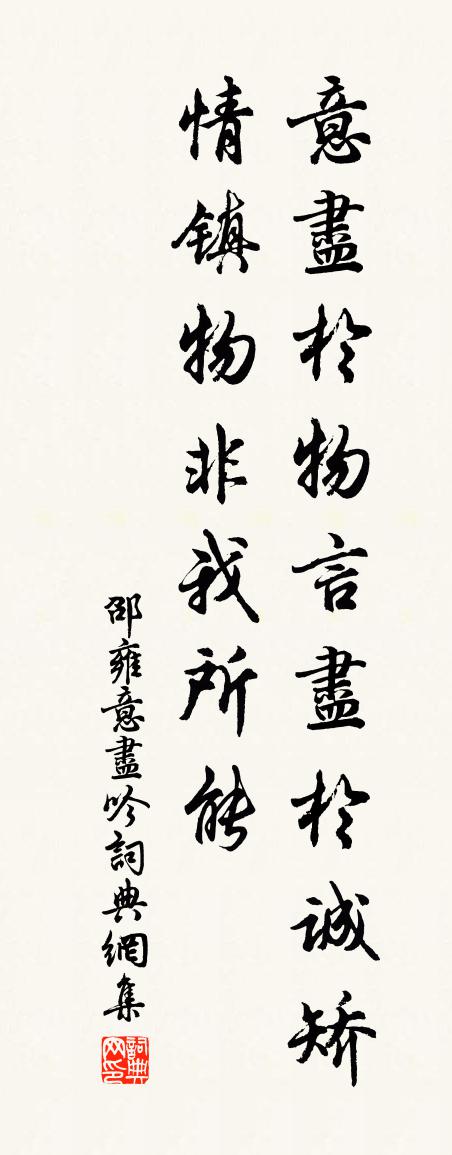 意盡於物言盡於誠矫
情镇物非我所能
邵雍意盡吟詞典網集
詞典网印